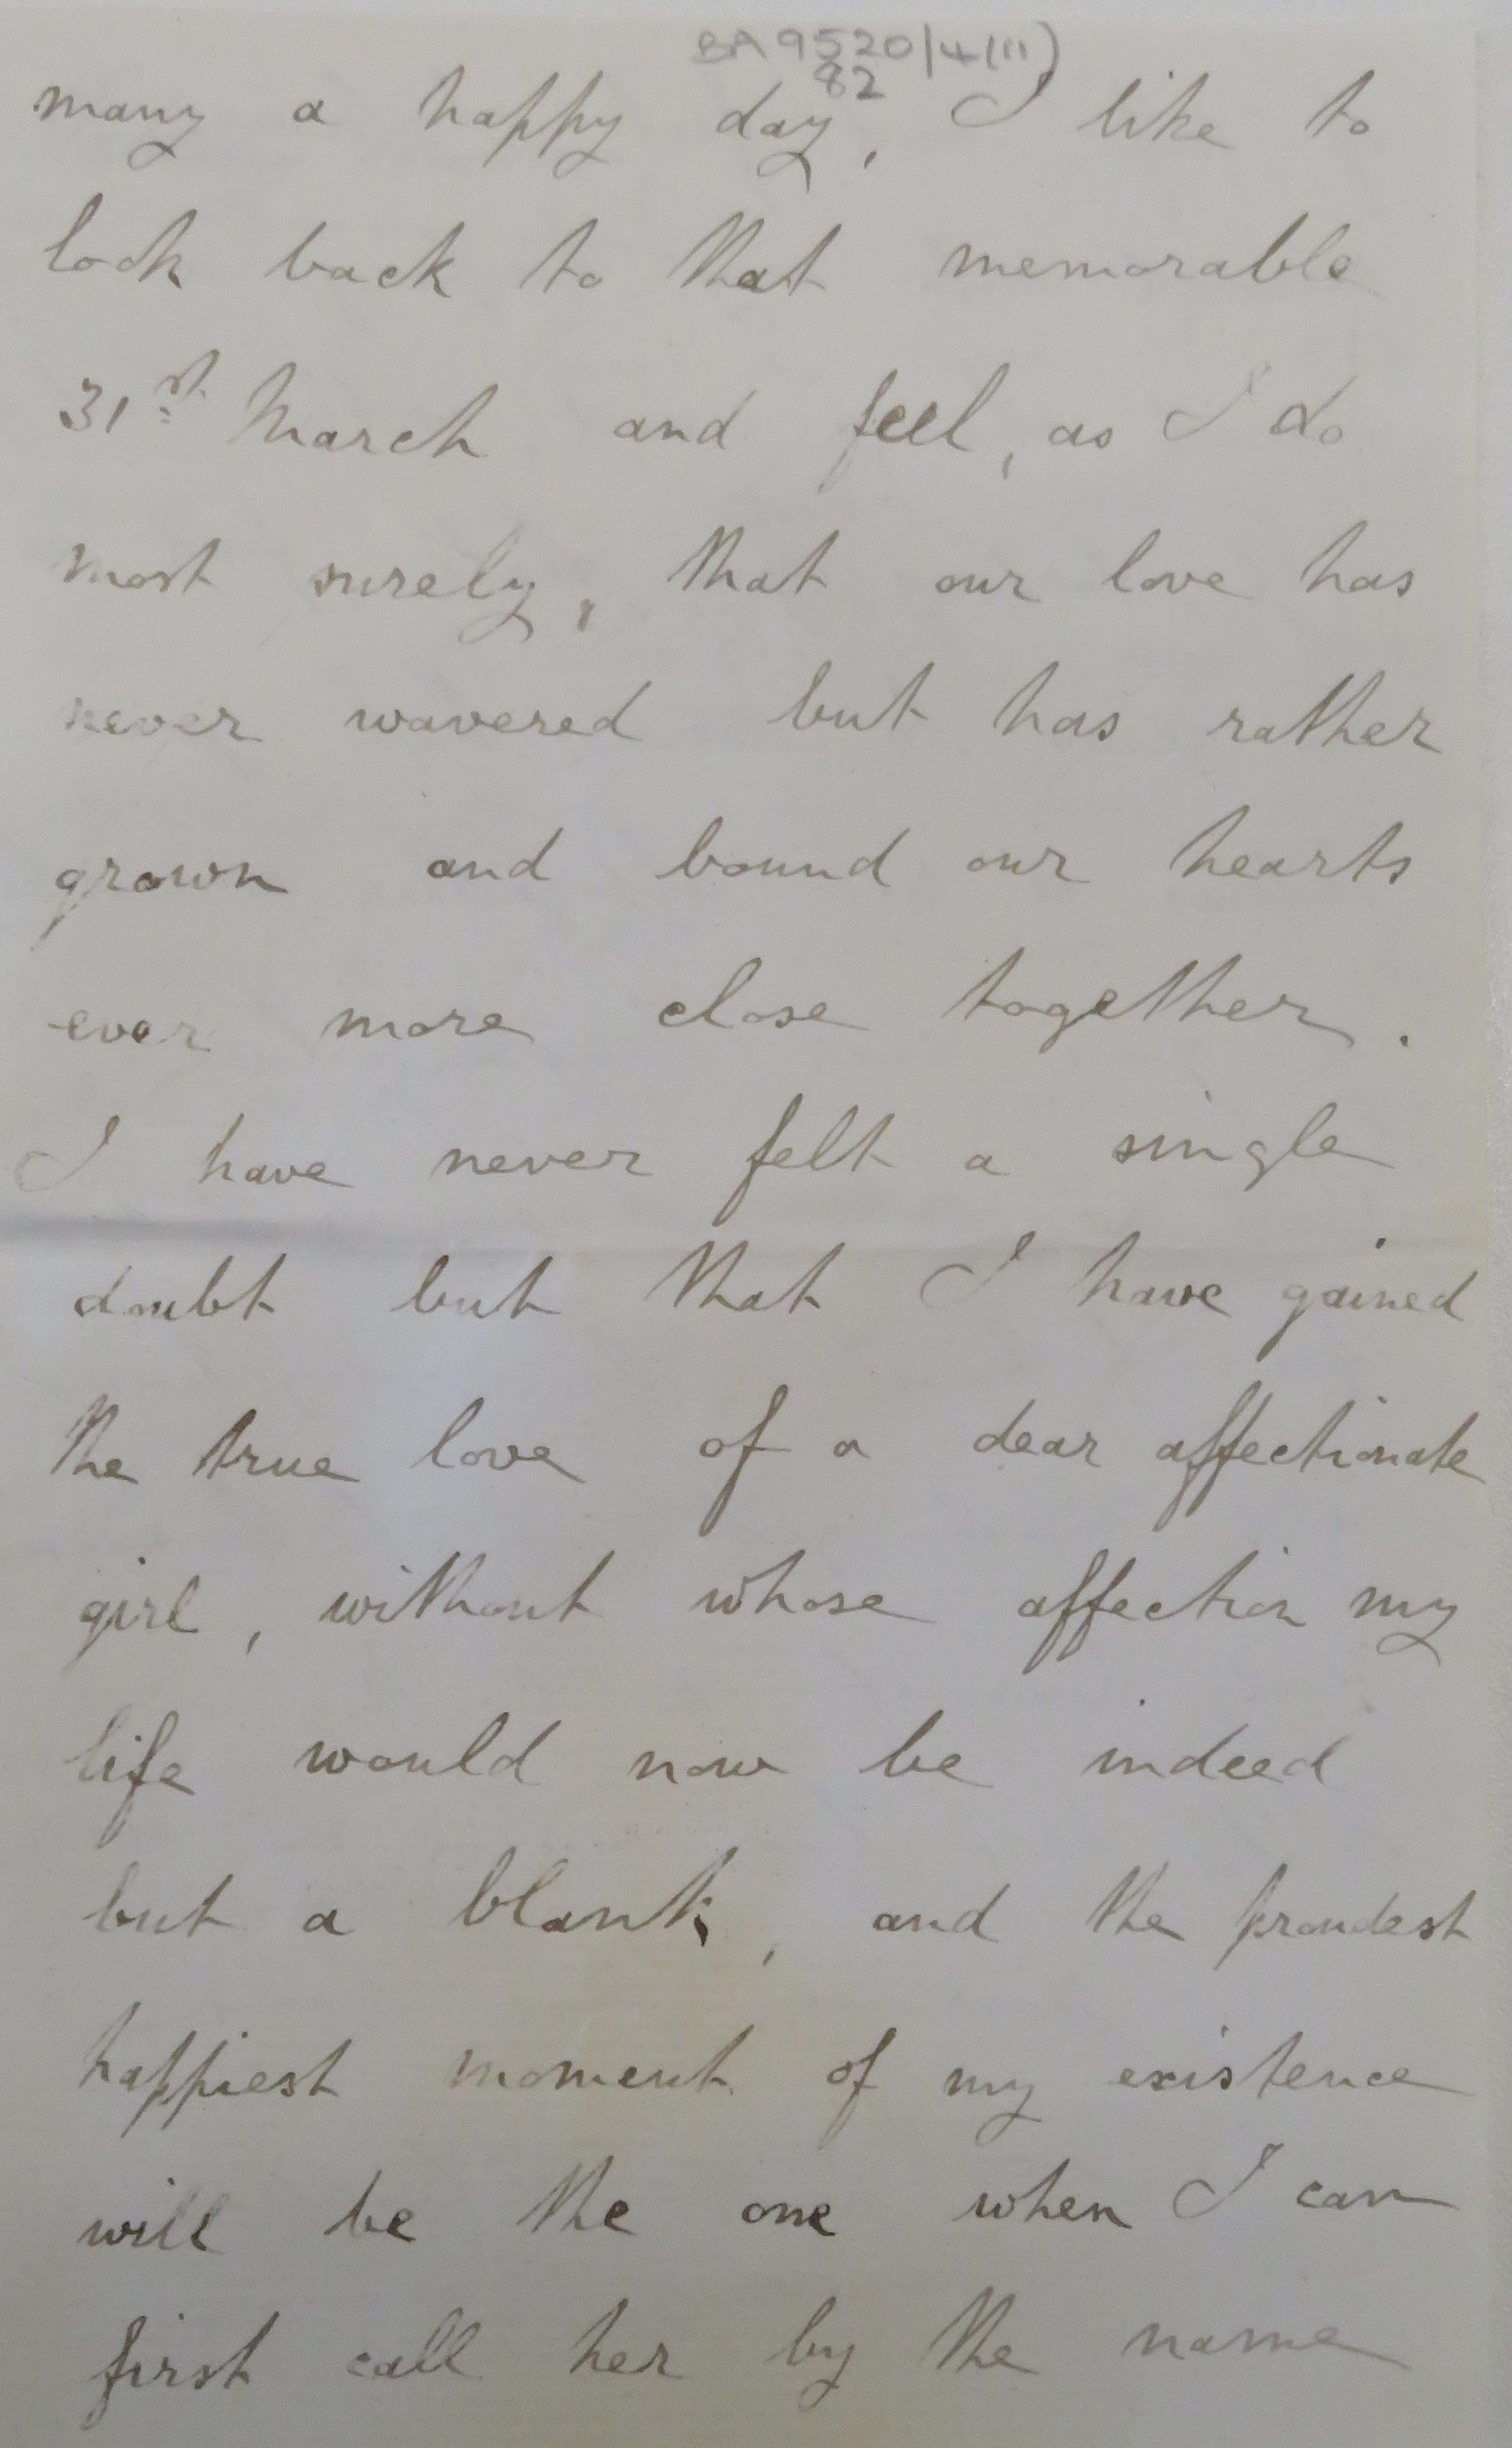 BA9520/4(11)
82
many a happy day, I like to
look back to that memorable
31st March and feel, as I do
most surely, that our love has
never wavered but has rather
grown and bound our hearts
ever more close together.
I have never felt a single
doubt but that I have gained
the true love of a dear affectionate
girl, without whose affection my
life would now be indeed
but a blank, and the proudest
happiest moment of my existence
will be the one when I can
first call her by the name